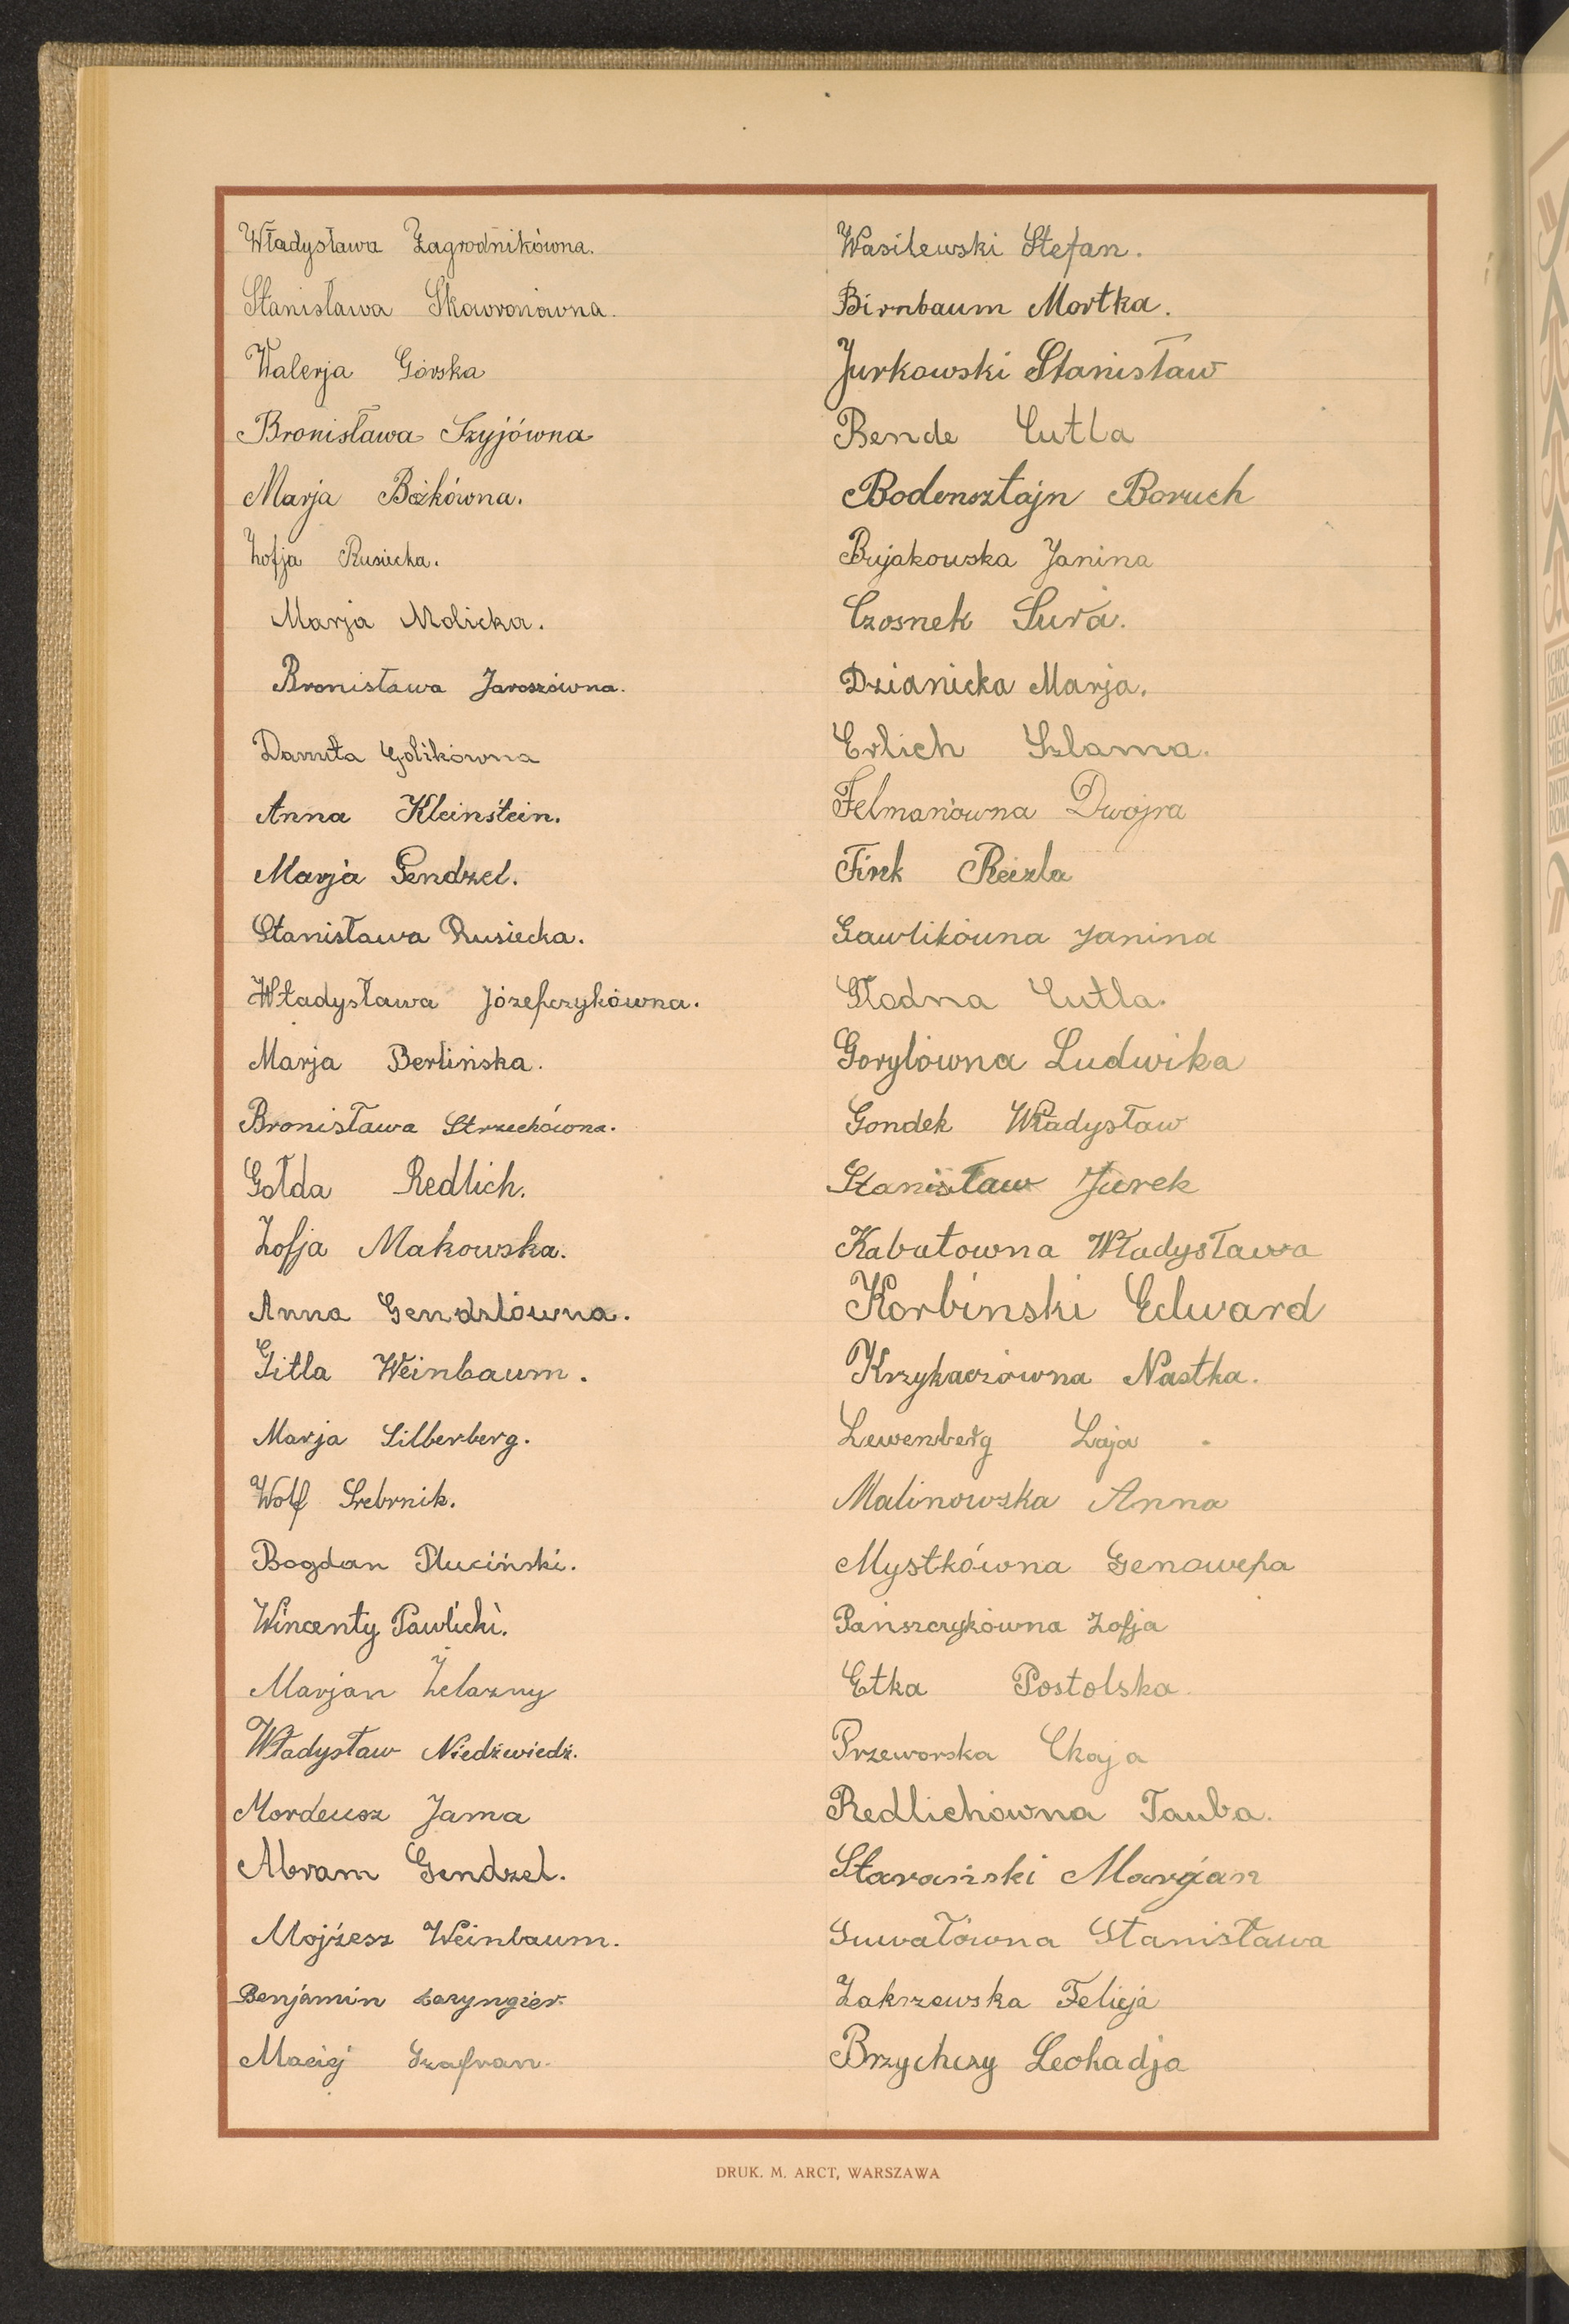 Władysława Zagrodnikówna.
Stanisława Skowronówna.
Walerja Górska
Bronisława Szyjówna
Marja Bożkówna.
Zofja Rusiecka.
Marja Molicka.
Bronisława Jaroszówna.
Danuta Golikówna
Anna Kleinstein.
Marja Gendzel.
Stanisława Rusiecka.
Władysława Józefczykówna.
Marja Berlińska.
Bronisława Strzechówna.
Gołda Redlich.
Zofja Makowska.
Anna Gendzlówna.
Gitla Weinbaum.
Marja Silberberg.
Wolf Srebrnik.
Bogdan Pluciński.
Wincenty Pawlicki.
Marjan Żelazny
Władysław Niedźwiedź.
Mordeusz Jama
Abram Gendzel.
Mojżesz Weinbaum.
Benjamin
Maciej Szafran.
Wasilewski Stefan.
Birnbaum Mortka.
Jurkowski Stanisław
Bende Cutla
Bodensztajn Boruch
Bujakowska Janina
Czosnek Sura.
Dzianicka Marja.
Erlich Szlama.
Felmanówna Dwojra
Fiszk Reizla
Gawlikówna Janina
Głodna Cutla.
Gorylówna Ludwika
Gondek Władysław
Stanisław Jurek
Kabatowna Władysława
Korbinski Edward
Krzykaczówna Nastka.
Lewenberg Łaja
Malinowska Anna
Mystkówna Genowefa
Pańszczykówna Zofja
Etka Postolska.
Przeworska Chaja
Redlichówna Tauba.
Starański Marjan
Suwałówna Stanisława
Zakrzewska Felicja
Brzychczy Leokadja
DRUK. M. ARCT, WARSZAWA